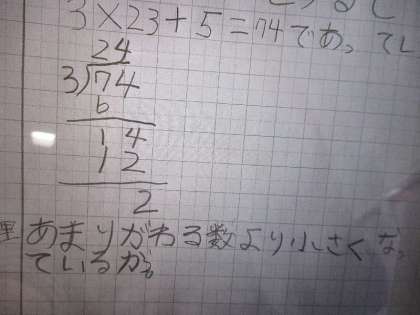 3×23+5=74であってし
24
3)74
6
14
12
2
あまりがわる数より小さくなっ
ているか。